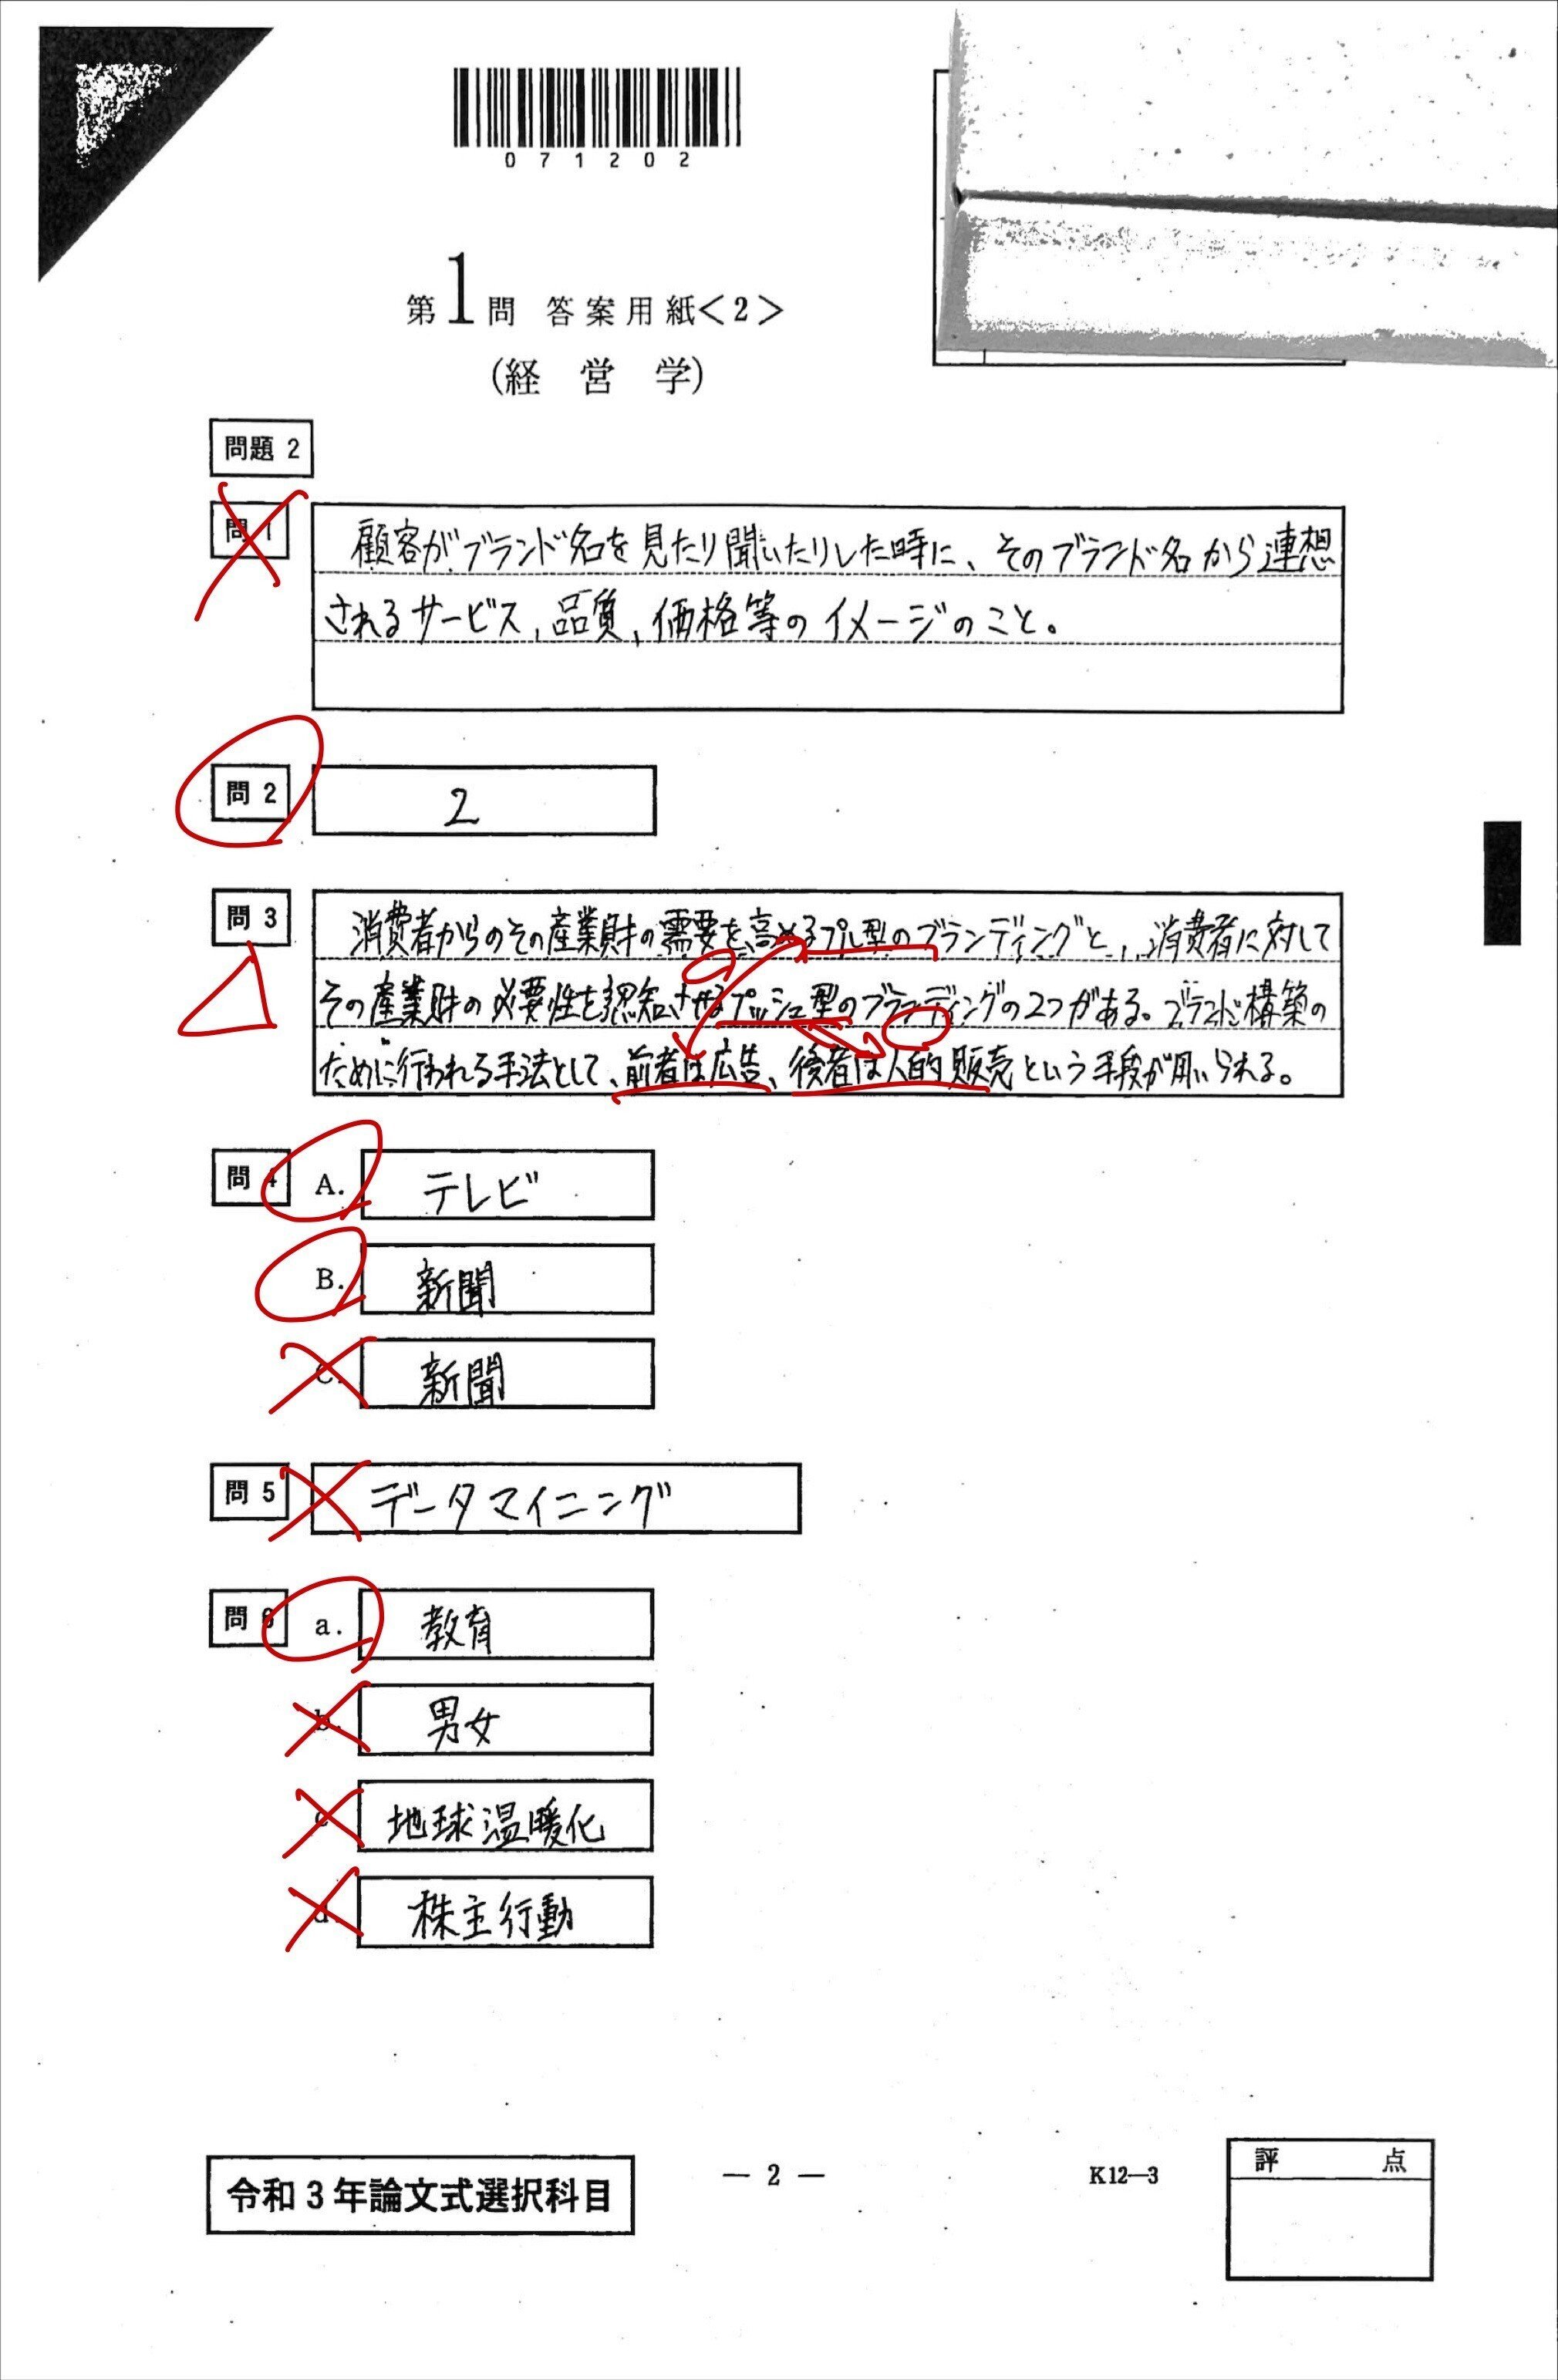 071202
第1問 答案用紙<2>
(経営学)
問題 2
問 1
顧客がブランド名を見たり聞いたりした時に、そのブランド名から連想
されるサービス,品質,価格等のイメージのこと。
問 2
2
問 3
消費者からのその産業財の需要を高めるプル型のブランディングと、消費者に対して
その産業財の必要性を認知させるプッシュ型のブランディングの2つがある。ブランド構築の
ために行われる手法として、前者は広告、後者は人的販売という手段が用いられる。
問 4 A. テレビ
B. 新聞
C. 新聞
問 5 データマイニング
問 6 a. 教育
b. 男女
c 地球温暖化
d. 株主行動
令和3年論文式選択科目
— 2 —
K12—3
評 点